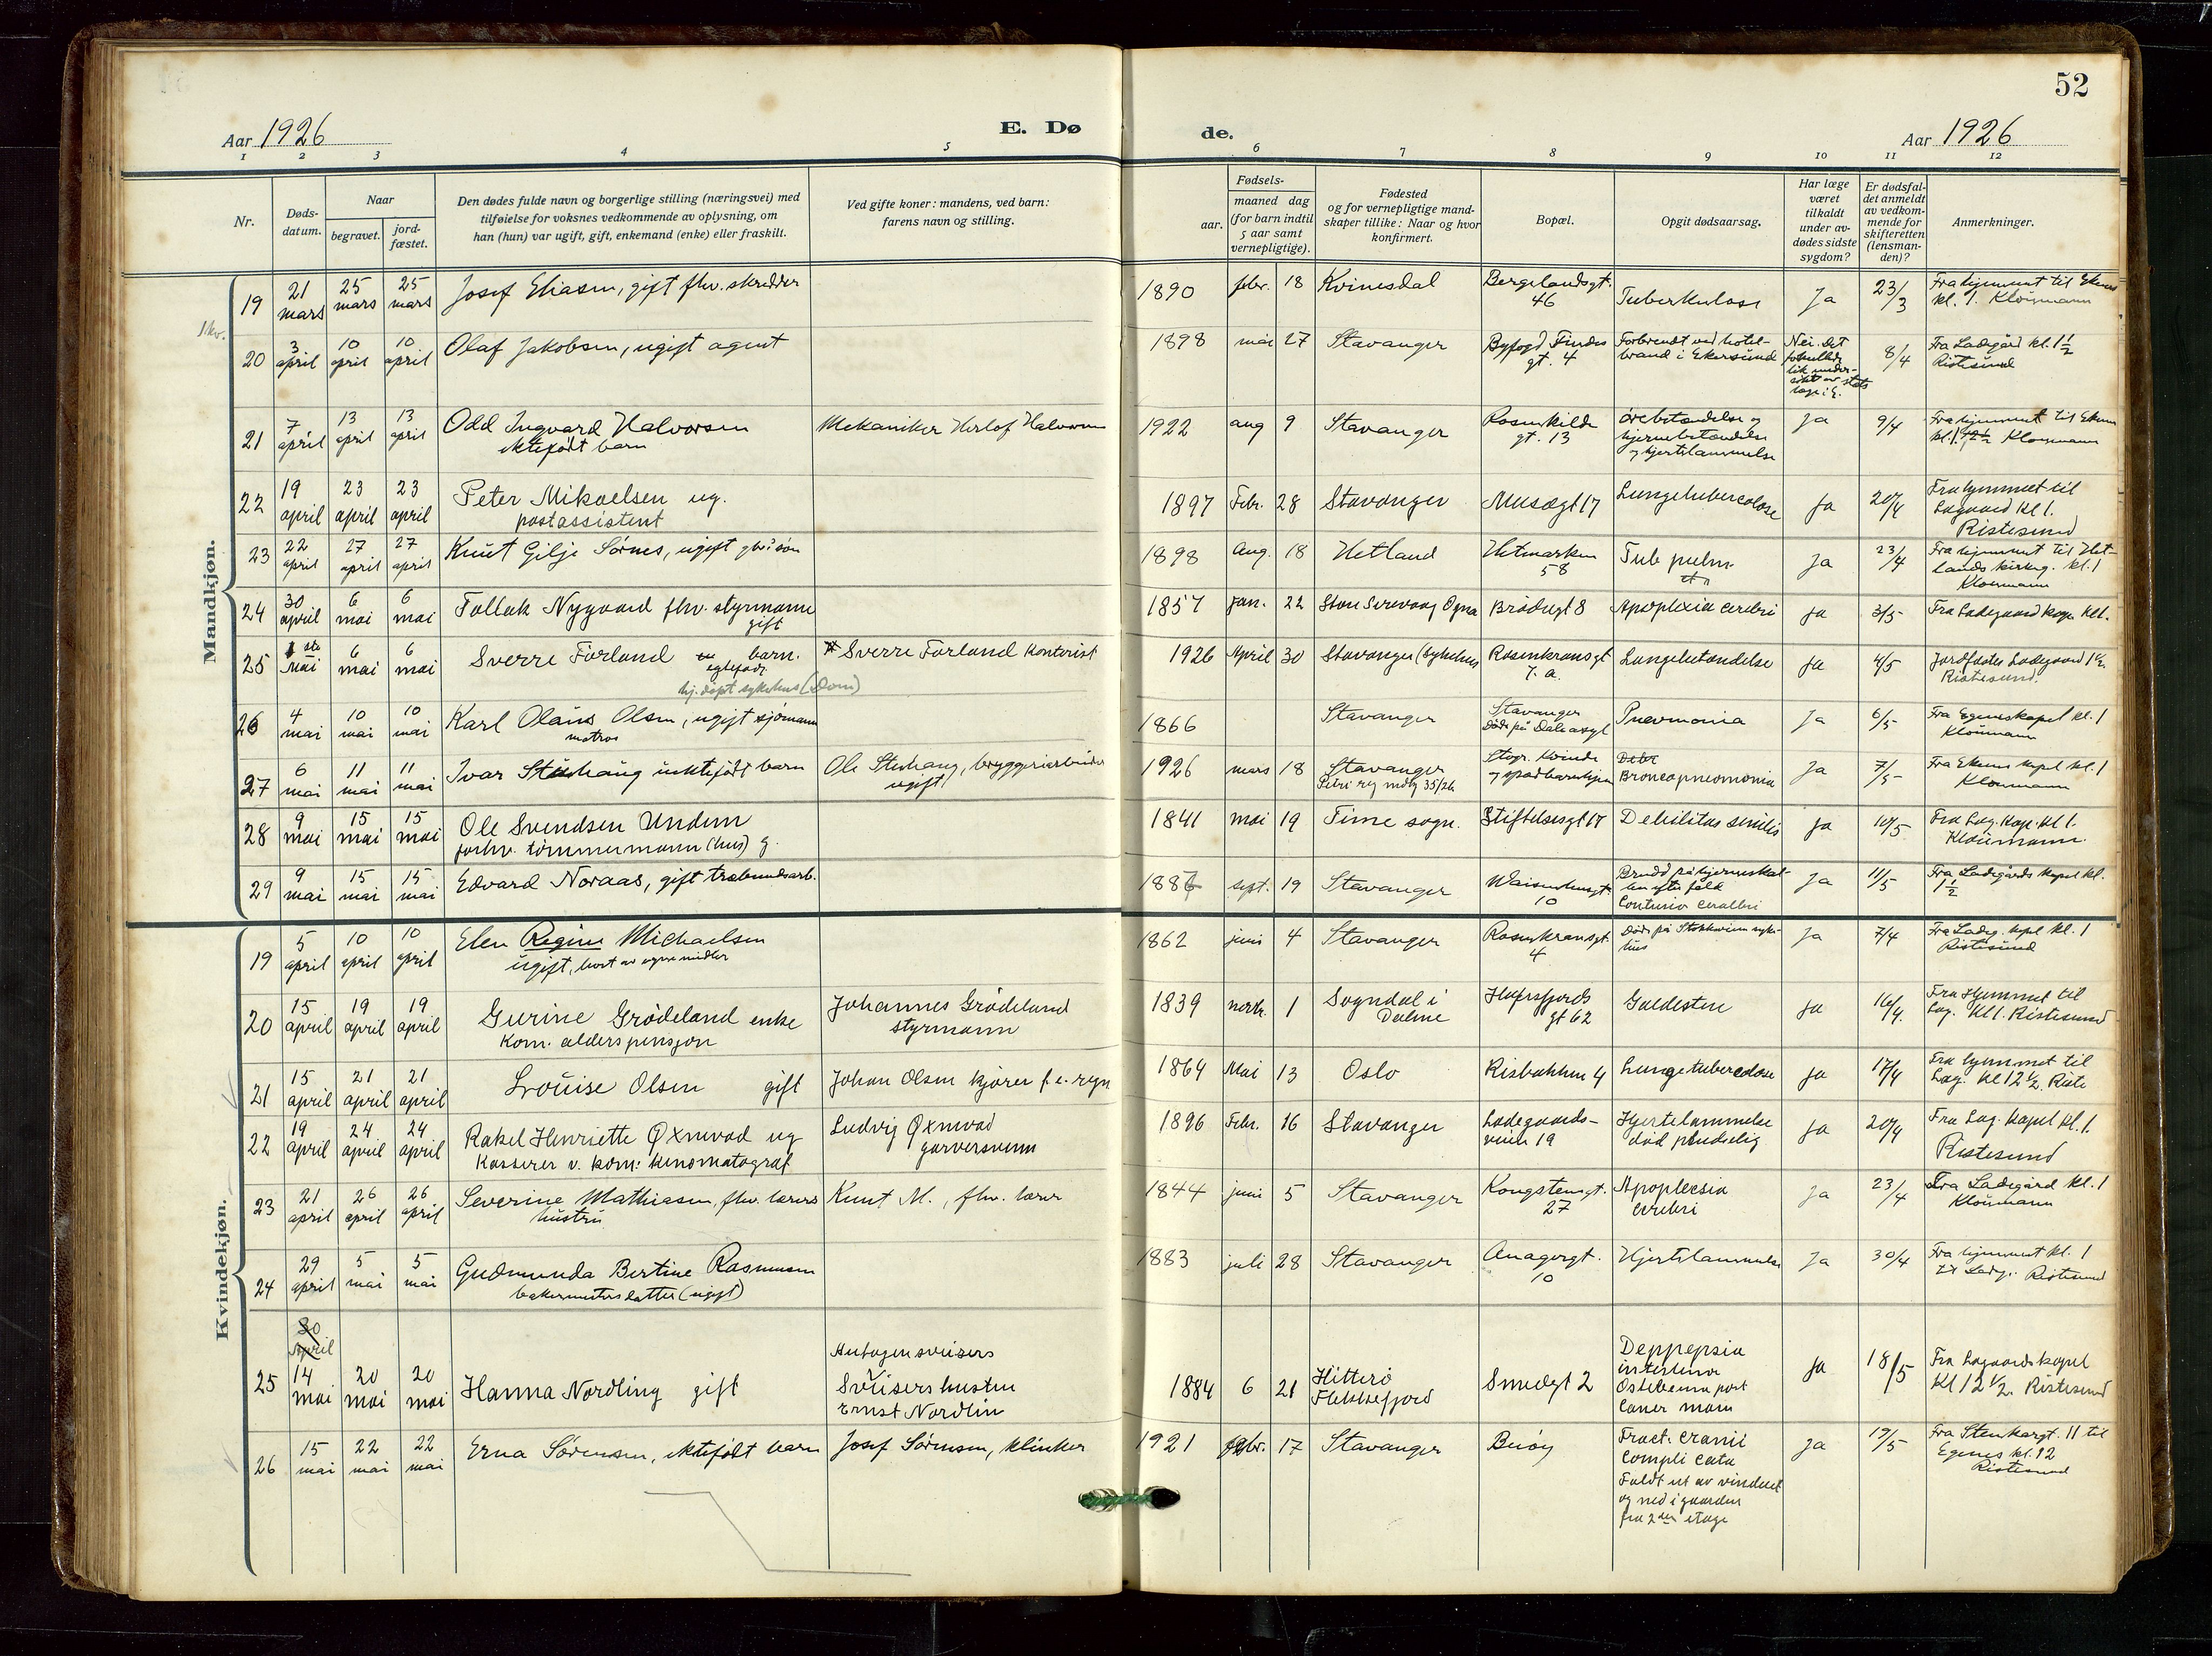 52
Aar 1926
E. Dø
de.
Aar 1926
1 2 3 4 5 6 7 8 9 10 11 12
Nr.
Døds-
datum.
Naar
begravet.
jord-
fæstet.
Den dødes fulde navn og borgerlige stilling (næringsvei) med
tilføielse for voksnes vedkommende av oplysning, om
han (hun) var ugift, gift, enkemand (enke) eller fraskilt.
Ved gifte koner: mandens, ved barn:
farens navn og stilling.
Fødsels-
aar.
maaned dag
(for barn indtil
5 aar samt
vernepligtige).
Fødested
og for vernepligtige mand-
skaper tillike: Naar og hvor
konfirmert.
Bopæl.
Opgit dødsaarsag.
Har læge
været
tilkaldt
under av-
dødes sidste
sygdom?
Er dødsfal-
det anmeldt
av vedkom-
mende for
skifteretten
(lensman-
den)?
Anmerkninger.
Mandkjøn.
19 21 mars 25 mars 25 mars Josef Eliasen, gift fhv. skredder 1890 febr. 18 Kvinesdal Bergelandsgt. 46 Tuberkulose Ja 23/3 Fra hjemmet til
kl. 1. Kloumann
20 3 april 10 april 10 april Olaf Jakobsen, ugift agent 1898 mai 27 Stavanger gt. 4 Forbrendt ved hotel-
brand i Ekersund Nei. Det 8/4 Fra Ladegård kl. 1 1/2
Ristesund
21 7 april 13 april 13 april Odd Ingvard Halvorsen
ektefødt barn Mekaniker Herlof Halvorsen 1922 aug 9 Stavanger Rosenkilde
gt. 13 ørebetændelse og
hjernebetændelse
og hjertelammelse Ja 9/4 Fra hjemmet til
Kloumann
22 19 april 23 april 23 april Peter Mikaelsen ug.
postassistent 1897 Febr. 28 Stavanger Musegt 17 Lungetubercolose Ja 20/4 Fra hjemmet til
Lagaard Kl 1.
Ristesund
23 22 april 27 april 27 april Knut Gilje Sørnes, ugift 1898 Aug. 18 Hetland Hetmarken
58 Tub pulm Ja 23/4 Fra hjemmet til Het-
lands kirkeg. kl. 1
Kloumann
24 30 april 6 mai 6 mai Tallak Nygaard fhv. styrmann
gift 1857 jan. 22 Ogna Brødregt 8 Apoplexia cerebri ja 3/5 Fra Ladegaard kap. kl 1.
25 1 ste Mai 6 mai 6 mai Sverre Førland barn.
egtefødt
hj. døpt sykehus (Dom) Sverre Førland Kontorist 1926 April 30 Stavanger (Sykehus Rosenkransgt
7. a. Lungebetændelse ja 4/5 Jordfæstes Ladegaard
Ristesund.
26 4 mai 10 mai 10 mai Karl Olaus Olsen, ugift sjømann
matros 1866 Stavanger Stavanger
Døde på Dale asyl Pnevmonia Ja 6/5 Fra Egeneskapel kl. 1
Kloumann
27 6 mai 11 mai 11 mai Ivar Stuhaug uektefødt barn Ole Stuhaug, bryggeriarbeider
ugift! 1926 mars 18 Stavanger Broncopneomonia Ja 7/5 Fra Ekenes kapel kl. 1
Kloumann
28 9 mai 15 mai 15 mai Ole Svendsen Undem
forhv. tømmermann (hus) g. 1841 mai 19 Time sogn. Stiftelsesgt 17 Debilitas senilis ja 10/5 Fra Lag. Kap. kl 1.
Kloumann.
29 9 mai 15 mai 15 mai Edvard Noraas, gift 1886 sept. 19 Stavanger Waisenhusgt.
10 Brudd på hjerneskal-
len efter fald Ja 11/5 Fra Ladegårds kapel kl.
1 1/2
Kvindekjøn.
19 5 april 10 april 10 april Elen Regine Michaelsen
ugift, levet av egne midler 1862 juni 4 Stavanger Rosenkransgt.
4 Ja 7/4 Fra Ladeg. kapel kl. 1
Ristesund
20 15 april 19 april 19 april Gurine Grødeland enke
Kom. alderspensjon Johannes Grødeland
styrmann 1839 1 Sogndal i
Dalene Hafrsfjords
gt 62 Galdesten ja 16/4. Fra Hjemmet til
Lag. Kl 1. Ristesund
21 15 april 21 april 21 april Lovise Olsen gift Johan Olsen kjører f. e. regn 1864 Mai 13 Oslo Risbakken 4 Lungetubercolose ja 17/4 Fra hjemmet til
Lag. Kl 12 1/2. Riste
22 19 april 24 april 24 april Rakel Henriette Øxnevad ug
Kasserer v. kom: Kinomatograf Ludvig Øxnevad
garversvenn 1896 Febr. 16 Stavanger Ladegaards-
veien 19 Hjertelammelse
død pludselig ja 20/4 Fra Lag. Kapel kl. 1.
Ristesund
23 21 april 26 april 26 april Severine Mathiasen, fhv. lærers
hustru Knut M., fhv. lærer 1844 juni 5 Stavanger Kongstensgt.
27 Apoplecsia
cerebri Ja 23/4 Fra Ladegård kl. 1
Kloumann
24 29 april 5 mai 5 mai Gudmunda Bertine Rasmussen
bakermesters datter (ugift) 1883 juli 28 Stavanger Anagergt.
10 Hjertelammelse Ja 30/4 Fra hjemmet kl. 1
til Ladeg. Ristesund
25 30 April 14 mai 20 mai 20 mai Hanna Nordling gift Autogensveisers
Sveisers hustru
Ernst Nordlin 1884 6 21 Hitterø
Flekkefjord Smedgt 2 Deppepsia
intestina ja 18/5 Fra Lagaardskapel
Kl 12 1/2. Ristesund
26 15 mai 22 mai 22 mai Erna Sørensen, ektefødt barn Josef Sørensen, klinker 1921 17 Stavanger Buøy Fract. cranii
compli cata
Faldt ut av vinduet
og ned i gaarden
fra 2den etage ja 19/5 Fra Stenkargt. 11 til
Egenes kl. 12
Ristesund